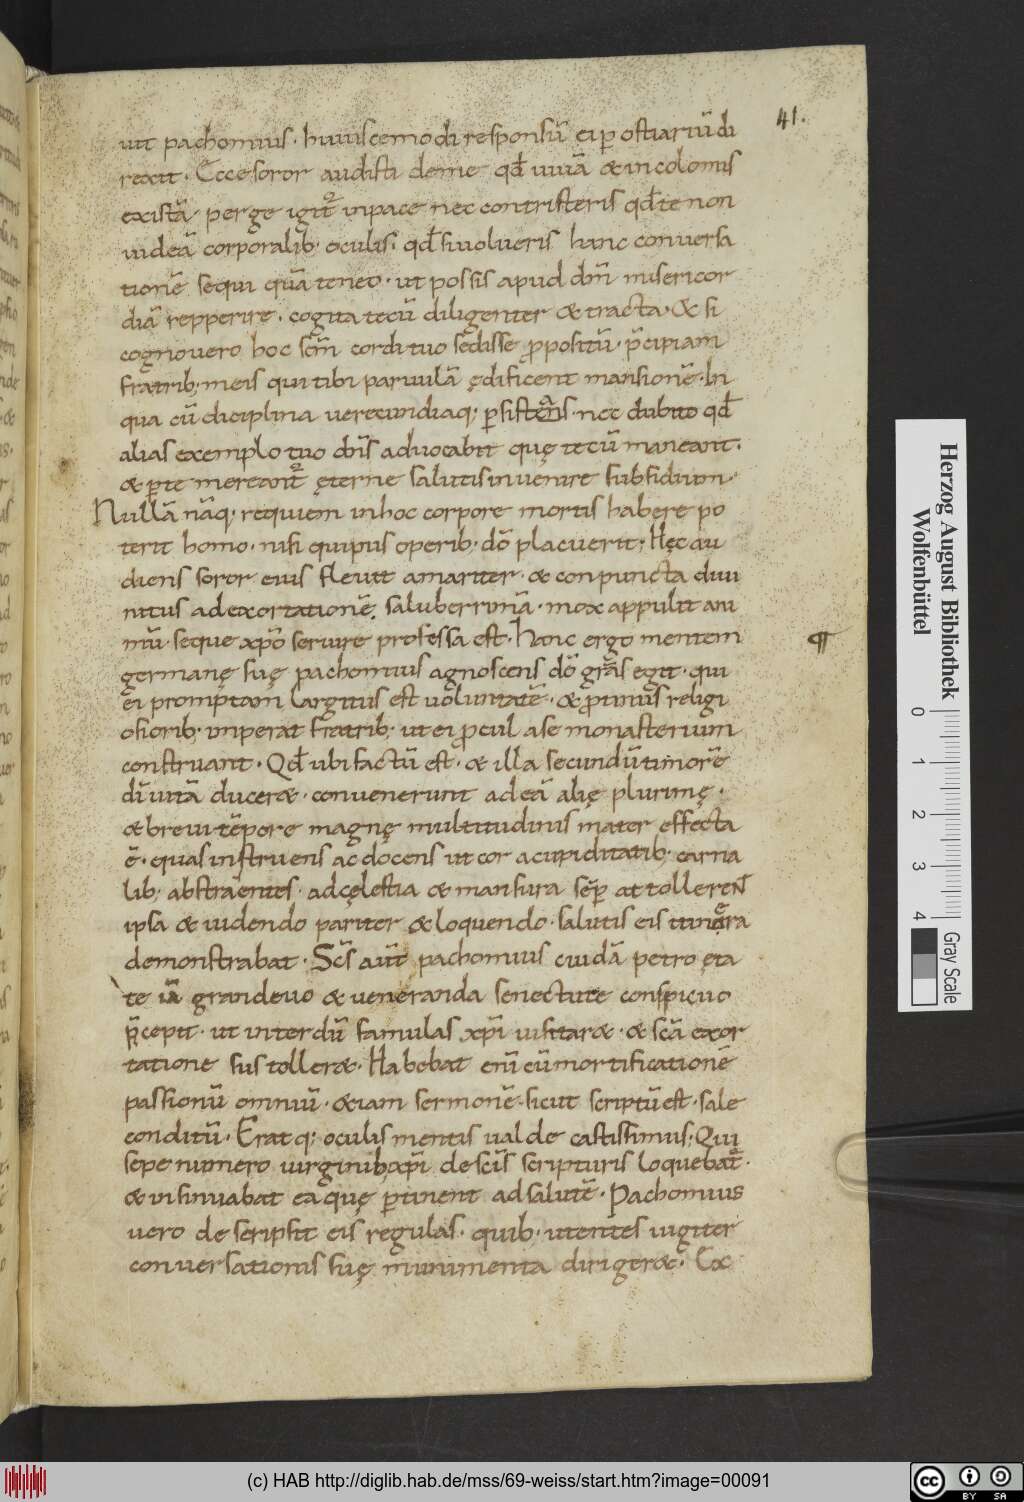 41.
uit pachomius · huiuscemodi responsū ei ꝑ ostiariū di
rexit · Ecce soror audisti deme qđ uiuā & incolomis
existā · perge igit̃ inpace nec contristeris qđ te non
uideā corporalib; oculis; qđ si uolueris hanc conuersa
tionē sequi quā teneo · ut possis apud dm̄ misericor
diā repperire · cogita tecū diligenter & tracta · & si
cognouero hoc scm̄ cordi tuo sędisse ꝓpositū · p̄cipiam
fratrib; meis qui tibi paruulā ędificent mansionē · In
qua cū diciplina uerecundiaq; ꝑsistens · nec dubito qđ
alias exemplo tuo dn̄s aduocabit quę tecū maneant ·
& ꝑ te mereant̃ ęterne salutis inuenire subsidium ·
Nullā nāq; requiem inhoc corpore mortis habere po
terit homo · nisi qui pus operib; dō placuerit; Hęc au
diens soror eius fleuit amariter · & conpuncta diui
nitus ad exortationē saluberrimā · mox appulit ani
mū · seque xp̄o seruire professa est · Hanc ergo mentem
¶
germanę suę pachomius agnoscens dō gr̄as egit · qui
ei promptam largitus est uoluntatē · & ꝓtinus religi
osiorib; imperat fratrib; ut ei ꝓcul ase monasterium
construant · Qđ ubi factū est · & illa secundū timorē
dī uitā ducer& · conuenerunt ad eā alię plurimę ·
& breui tēpore magnę multitudinis mater effecta
ē · equas instruens ac docens ut cor acupiditatib; carna
lib; abstraentes · ad cęlestia & mansura sēp attolleren̄t
ipsa & uidendo pariter & loquendo · salutis eis itinęra
demonstrabat · Scs̄ aūt pachomius cuidā petro ęta
te iā grandeuo & ueneranda senectute conspicuo
p̄cepit · ut interdū famulas xp̄i uisitar& · & scā exor
tatione sustoller& · Habebat enī eū mortificationē
passionū omniū · & iam sermonē · sicut scriptū est · sale
conditū · Erat q; oculis mentis ualde castissimus; Qui
sepe numero uirginib; xp̄i de scīs scripturis loquebat̃ ·
& insinuabat ea quę ꝑtinent ad salutē · Pachomius
uero de scripsit eis regulas · quib; utentes iugiter
conuersationis suę munimenta diriger& · Ex
Herzog August Bibliothek
Wolfenbüttel
0 1 2 3 4
Gray Scale
(c) HAB http://diglib.hab.de/mss/69-weiss/start.htm?image=00091
cc BY SA